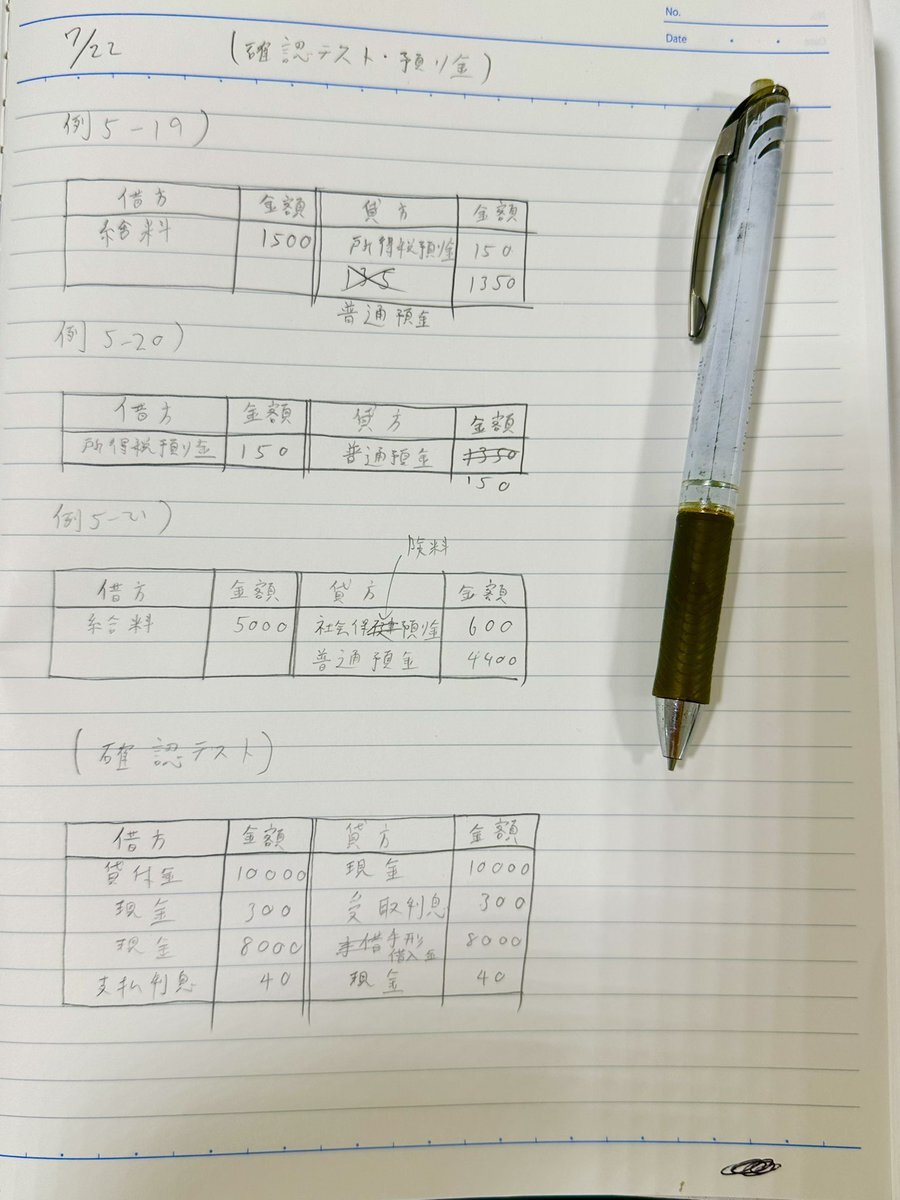 No.
Date
7/22 (確認テスト・預り金)
例5-19)
借方 金額 貸方 金額
給料 1500 所得税預り金 150
135 1350
普通預金
例5-20)
借方 金額 貸方 金額
所得税預り金 150 普通預金 1350
150
例5-21)
険料
借方 金額 貸方 金額
給料 5000 社会保預り金 600
普通預金 4400
(確認テスト)
借方 金額 貸方 金額
貸付金 10000 現金 10000
現金 300 受取利息 300
現金 8000 手形借入金 8000
支払利息 40 現金 40